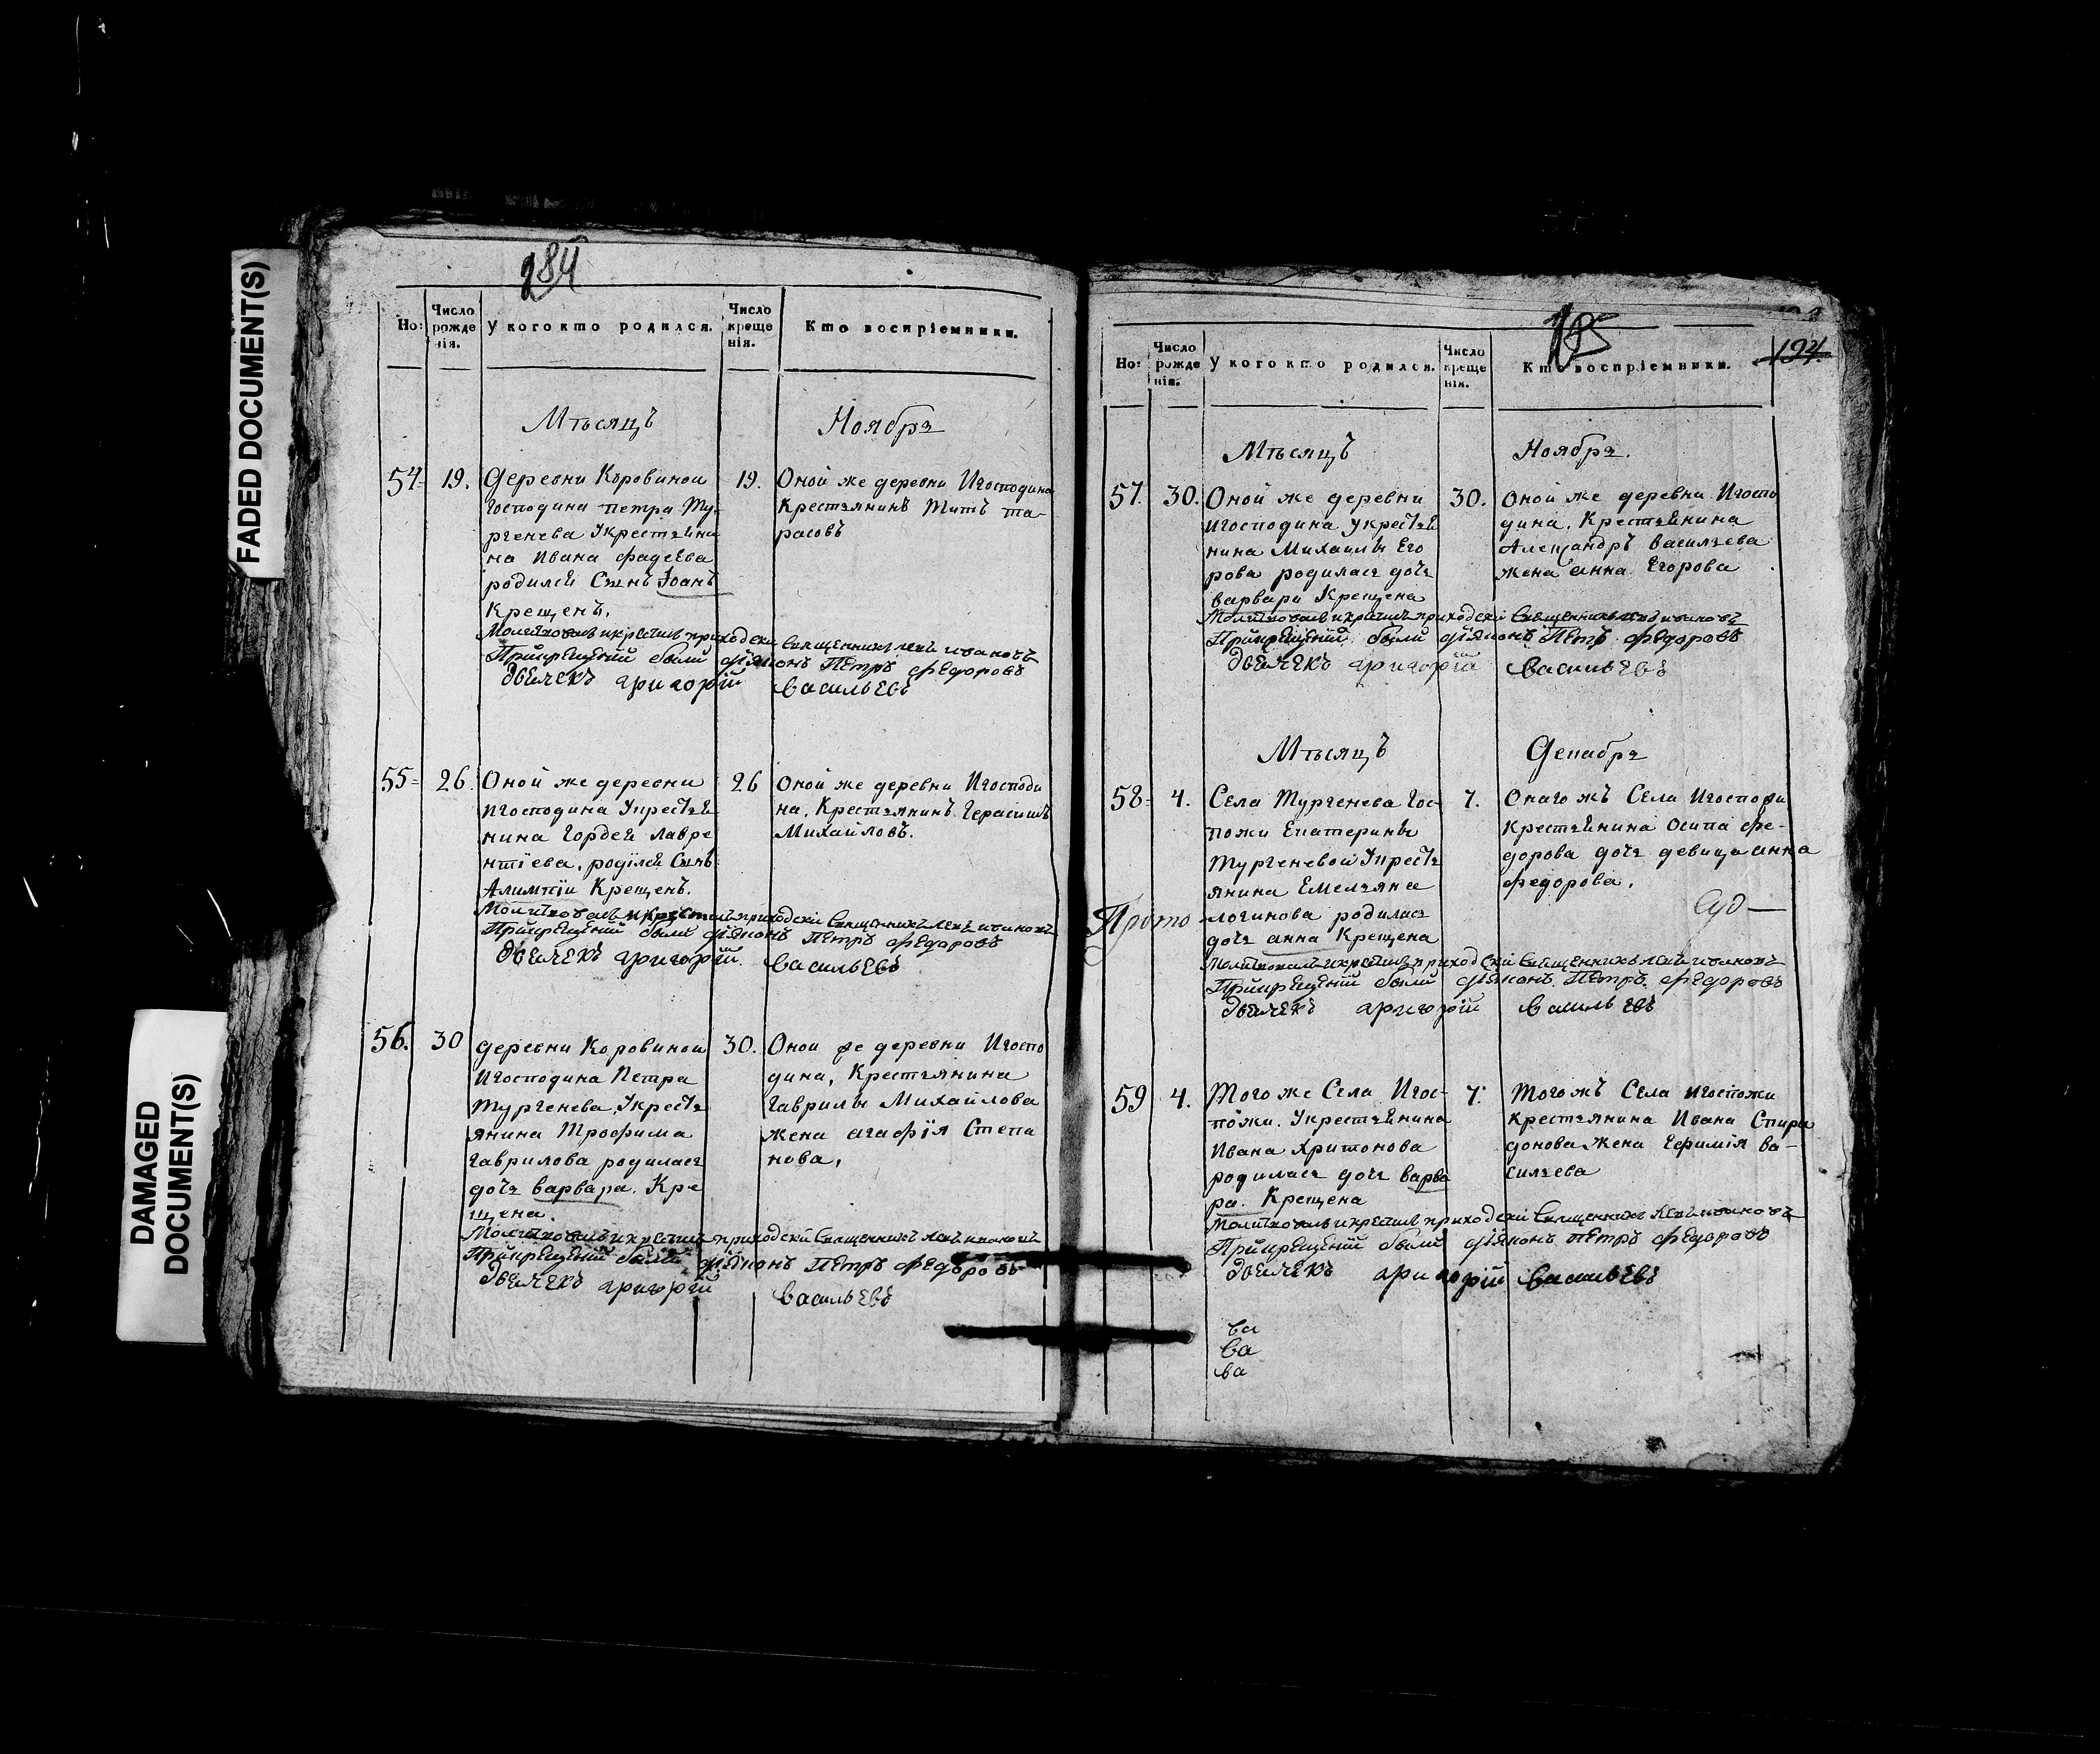 FADED DOCUMENT(S)
DAMAGED
DOCUMENT(S)
284
Но:
Число
рожде
нія.
У кого кто родился.
Число
креще
нія.
Кто воспріемники.
Мѣсяцъ Ноябрь
54 19. Деревни Коровиной
Господина петра Ту-
ргенева Укрестьяни
на Ивана Фадеева
родился Сынъ Іоанъ
Крещенъ.
19. Оной же деревни Игосподина
Крестьянинъ Титъ та-
расовъ
Молитвовалъ и крестилъ приходски Священникъ левъ ивановъ
Прикрещении были діяконъ Петръ Федоровъ
дьячекъ григорій Васильевъ
55 26. Оной же деревни
Игосподина Укрестья
нина Гордея Лавре
нтіева, родился Сынъ
Алимпіи Крещенъ.
26 Оной же деревни Игосподи
на, Крестьянинъ Герасимъ
Михайловъ.
Молитвовалъ и крестилъ приходски Священникъ левъ ивановъ
Прикрещении были діяконъ Петръ Федоровъ
дьячекъ григорій Васильевъ
56. 30 деревни Коровиной
Игосподина Петра
Тургенева, Укресть
янина Трофима
Гаврилова родилась
дочь варвара. Кре
щена.
30. Оной же деревни Игоспо
дина, Крестьянина
Гаврилы Михайлова
жена агафія Степа
нова,
Молитвовалъ и крестилъ приходски Священникъ левъ ивановъ
Прикрещении были діяконъ Петръ Федоровъ
дьячекъ григорій Васильевъ
285
194.
Но:
Число
рожде
нія.
У кого кто родился.
Число
креще
нія.
Кто воспріемники.
Мѣсяцъ Ноябрь.
57. 30. Оной же деревни
Игосподина Укрестья
нина Михаилы Его
рова родилась дочь
варвара Крещена
30. Оной же деревни Игоспо
дина, Крестьянина
Александръ васильева
жена анна Егорова
Молитвовалъ и крестилъ приходски Священникъ левъ ивановъ
Прикрещении были діяконъ Петръ Федоровъ
дьячекъ григорій Васильевъ
Мѣсяцъ Декабрь
58 4. Села Тургенева Гос-
пожи Екатерины
Тургеневой Укресть
янина Емельяна
логинова родилась
дочь анна Крещена
7. Онаго жъ Села Игоспожи
Крестьянина Осипа Фе-
дорова дочь девица анна
Федорова.
Прото
Молитвовалъ и крестилъ приходски Священникъ левъ ивановъ
Прикрещении были діяконъ Петръ Федоровъ
дьячекъ григорій Васильевъ
59 4. Того же Села Игос-
пожи. Укрестьянина
Ивана Харитонова
родилась дочь варва
ра. Крещена
7. Того жъ Села Игоспожи
Крестьянина Ивана Спири
донова жена Ефимія ва-
сильева
Молитвовалъ и крестилъ приходски Священникъ левъ ивановъ
Прикрещении были діяконъ Петръ Федоровъ
дьячекъ григорій Васильевъ
ва
ва
ва